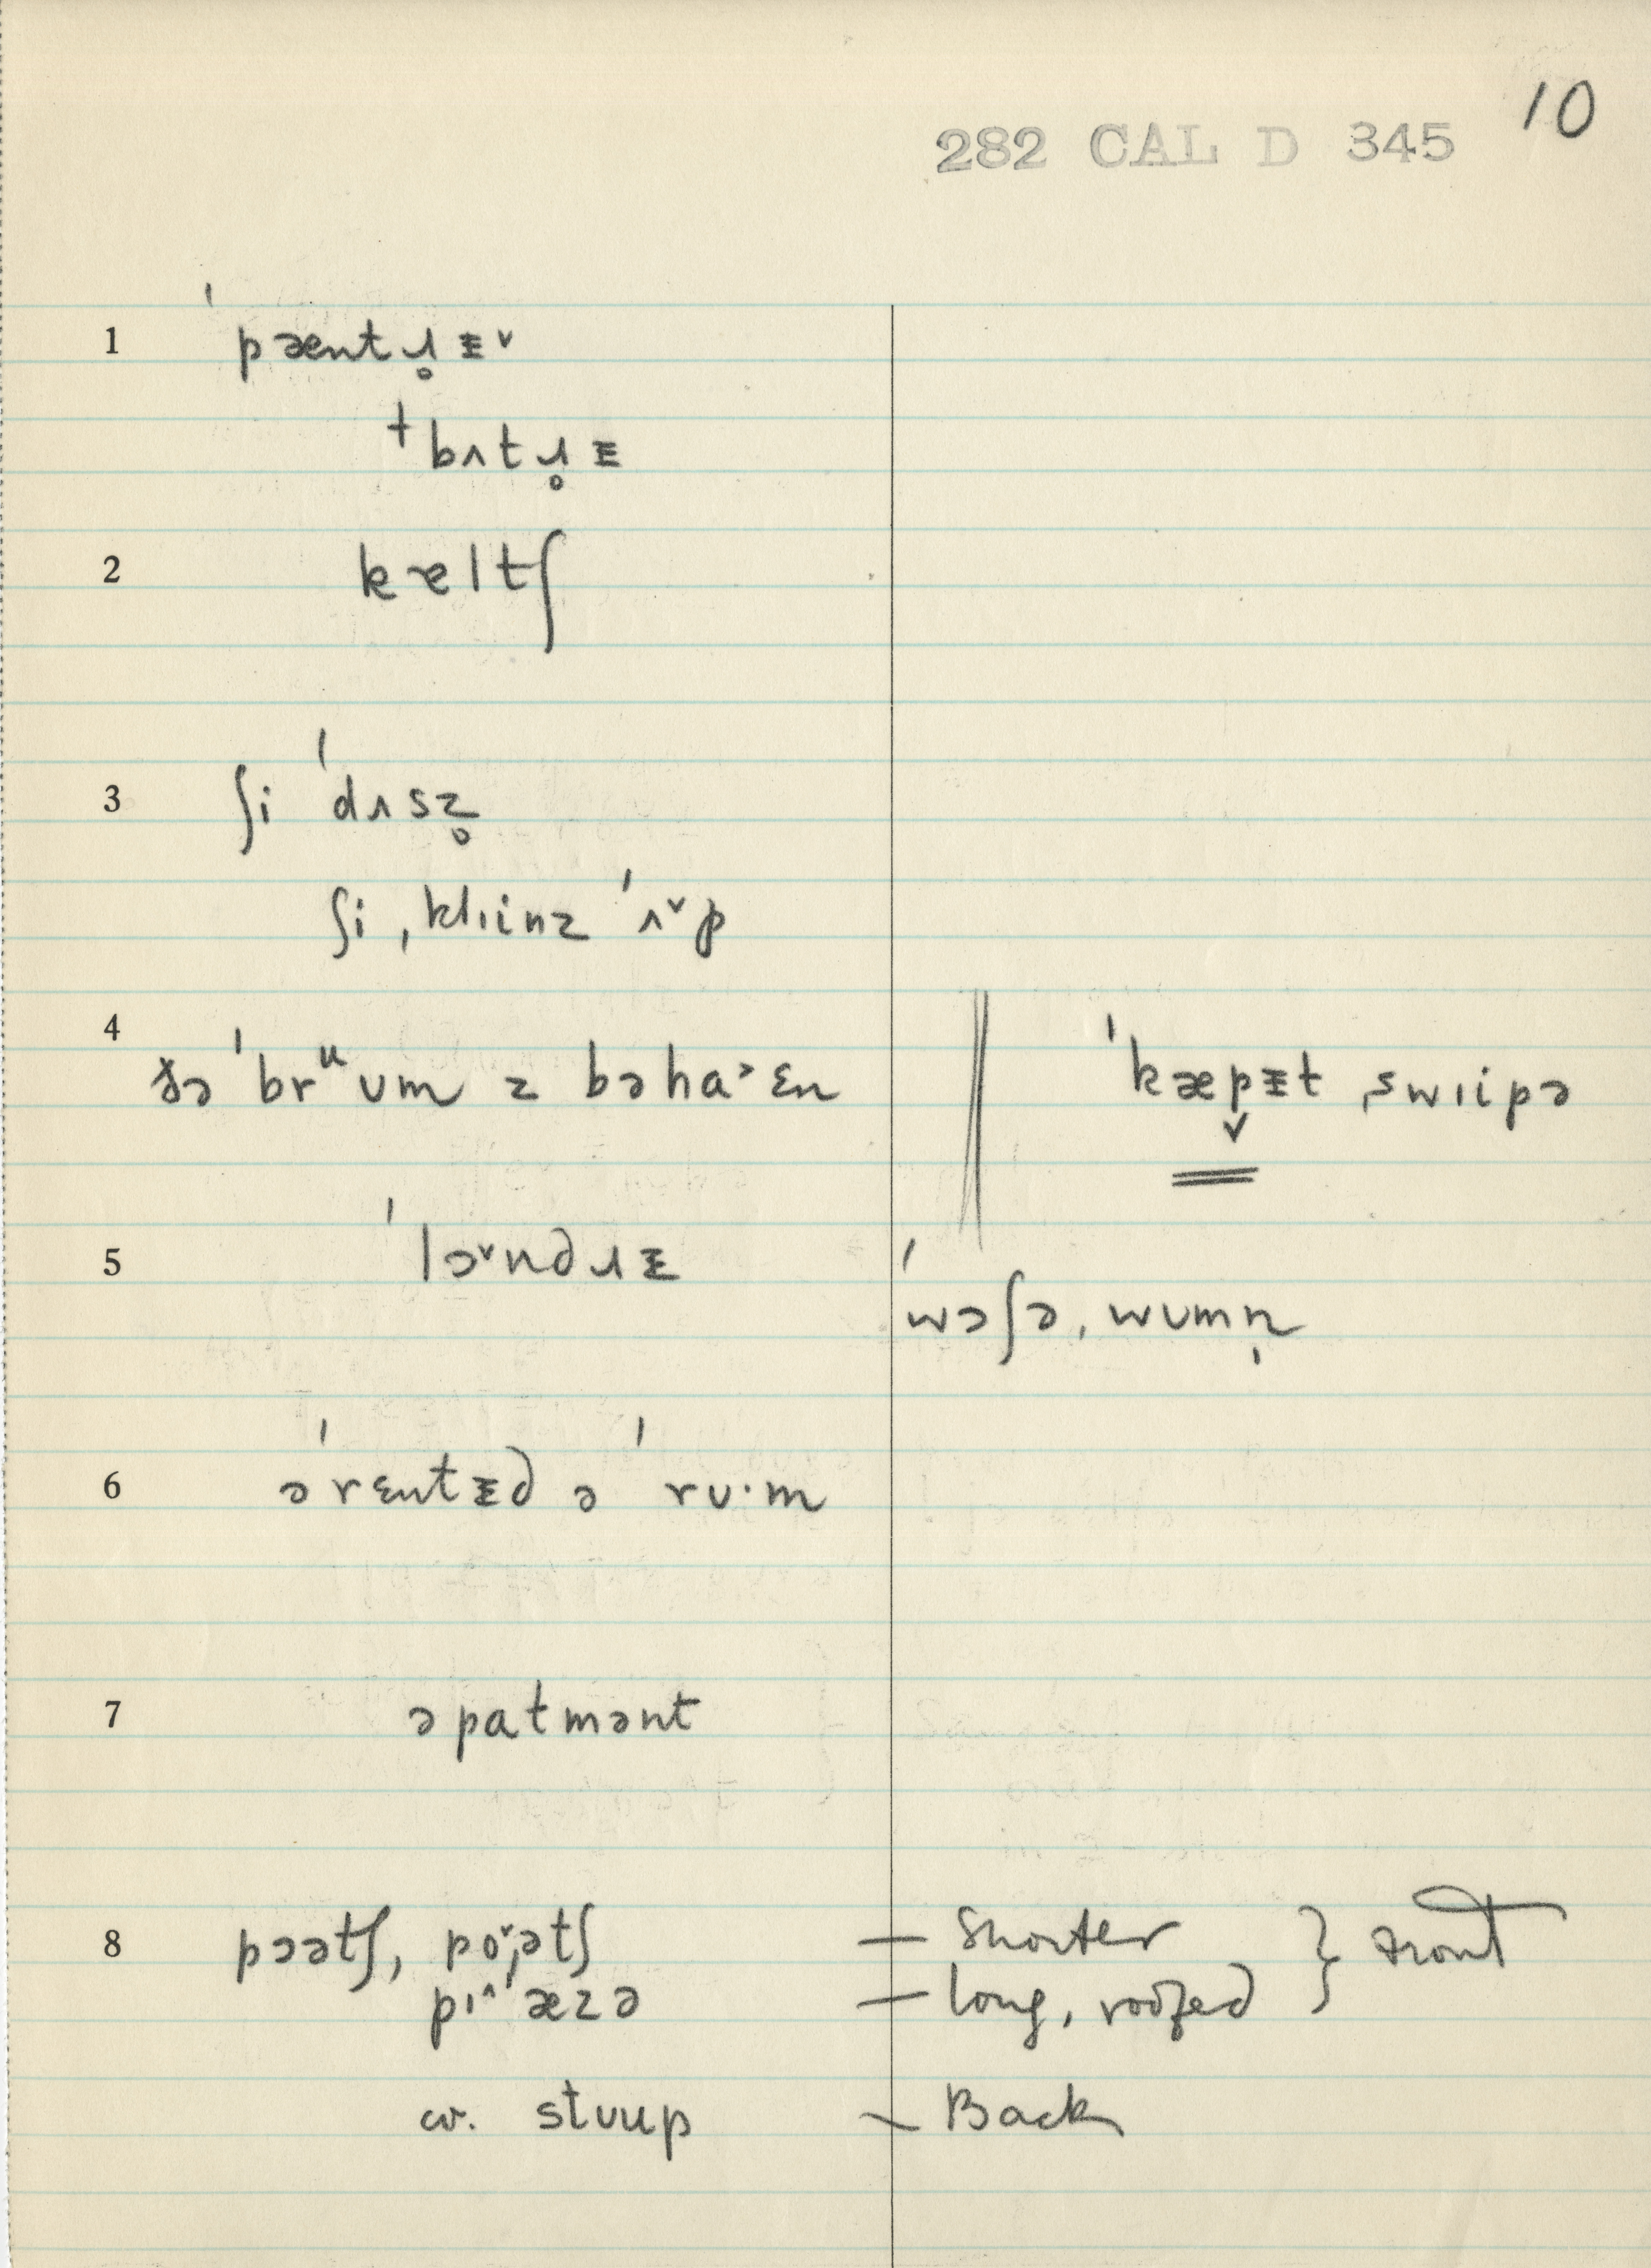 10
282 CAL D 345
1 ˈpæntɹ̥ᵻ˅
†bʌtɹ̥ᵻ
2 kæltʃ
3 ʃi ˈdʌsz̥
ʃi ˌklɪinz ˈʌ˅p
4 ðə ˈbrᵘʊm z bəha˃ɛn ˈkæp̬ᵻt ˌswɪipə
5 ˈlɔ˅ndɹᵻ
ˈwɔʃəˌwʊmn̩
6 ə ˈrɛntᵻd ə ˈrʊ·m
7 əpatmənt
8 pɔətʃ, po˅ˑətʃ — shorter } front
pɪ^ˈæzə — long, roofed
cv. stʊup — Back